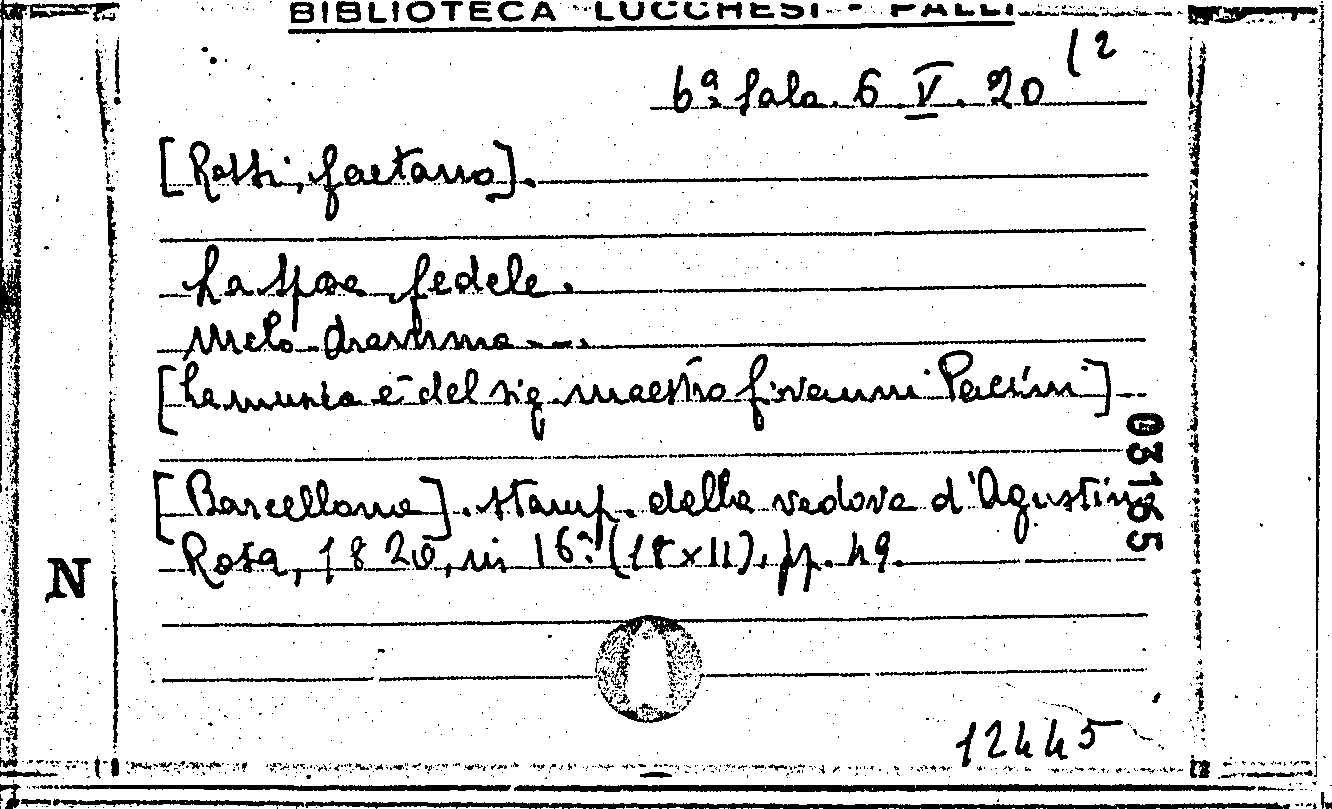 BIBLIOTECA LUCCHESI - PALLI
6ª Sala. 6. V. 20 (2
[Rossi, Gaetano].
La sposa fedele.
Melo-dramma ---.
[La musica è del sig. maestro Giovanni Pacini]
[Barcellona]. Stamp. della vedova d'Agustino
Rosa, 1820, in 16º (18x11), pp. 49.
N
03195
12445